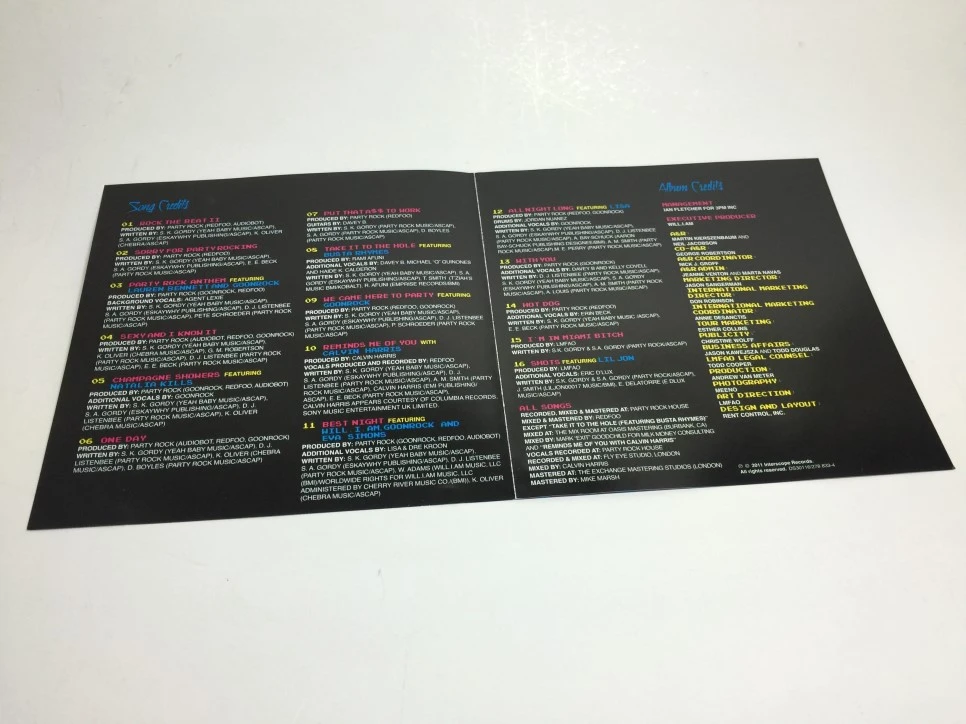 Song Credits
01 ROCK THE BEAT II
PRODUCED BY: PARTY ROCK (REDFOO, AUDIOBOT)
WRITTEN BY: S. K. GORDY (YEAH BABY MUSIC/ASCAP),
S. A. GORDY (ESKAYWHY PUBLISHING/ASCAP), K. OLIVER
(CHEBRA/ASCAP)
02 SORRY FOR PARTY ROCKING
PRODUCED BY: PARTY ROCK (REDFOO)
WRITTEN BY: S. K. GORDY (YEAH BABY MUSIC/ASCAP),
S. A. GORDY (ESKAYWHY PUBLISHING/ASCAP), E. E. BECK
(PARTY ROCK MUSIC/ASCAP)
03 PARTY ROCK ANTHEM FEATURING
LAUREN BENNETT AND GOONROCK
PRODUCED BY: PARTY ROCK (GOONROCK, REDFOO)
BACKGROUND VOCALS: AGENT LEXIE
WRITTEN BY: S. K. GORDY (YEAH BABY MUSIC/ASCAP),
S. A. GORDY (ESKAYWHY PUBLISHING/ASCAP), D. J. LISTENBEE
(PARTY ROCK MUSIC/ASCAP), PETE SCHROEDER (PARTY ROCK
MUSIC/ASCAP)
04 SEXY AND I KNOW IT
PRODUCED BY: PARTY ROCK (AUDIOBOT, REDFOO, GOONROCK)
WRITTEN BY: S. K. GORDY (YEAH BABY MUSIC/ASCAP),
K. OLIVER (CHEBRA MUSIC/ASCAP), G. M. ROBERTSON
(PARTY ROCK MUSIC/ASCAP), D. J. LISTENBEE (PARTY ROCK
MUSIC/ASCAP), E. E. BECK (PARTY ROCK MUSIC/ASCAP)
05 CHAMPAGNE SHOWERS FEATURING
NATALIA KILLS
PRODUCED BY: PARTY ROCK (GOONROCK, REDFOO, AUDIOBOT)
ADDITIONAL VOCALS BY: GOONROCK
WRITTEN BY: S. K. GORDY (YEAH BABY MUSIC/ASCAP),
S. A. GORDY (ESKAYWHY PUBLISHING/ASCAP), D. J.
LISTENBEE (PARTY ROCK MUSIC/ASCAP), K. OLIVER
(CHEBRA MUSIC/ASCAP)
06 ONE DAY
PRODUCED BY: PARTY ROCK (AUDIOBOT, REDFOO, GOONROCK)
WRITTEN BY: S. K. GORDY (YEAH BABY MUSIC/ASCAP), D. J.
LISTENBEE (PARTY ROCK MUSIC/ASCAP), K. OLIVER (CHEBRA
MUSIC/ASCAP), D. BOYLES (PARTY ROCK MUSIC/ASCAP)
07 PUT THAT A$$ TO WORK
PRODUCED BY: PARTY ROCK (REDFOO)
GUITARS BY: DAVEY B.
WRITTEN BY: S. K. GORDY (YEAH BABY MUSIC/ASCAP),
S. A. GORDY (PARTY ROCK MUSIC/ASCAP), D. BOYLES
(PARTY ROCK MUSIC/ASCAP)
08 TAKE IT TO THE HOLE FEATURING
BUSTA RHYMES
PRODUCED BY: RAMI AFUNI
ADDITIONAL VOCALS BY: DAVEY B, MICHAEL "G" QUINONES
AND HAIDE K. CALDERON
WRITTEN BY: S. K. GORDY (YEAH BABY MUSIC/ASCAP), S. A.
GORDY (ESKAYWHY PUBLISHING/ASCAP), T. SMITH (T'ZIAH'S
MUSIC BMI/KOBALT), R. AFUNI (EMPRISE RECORDS/BMI)
09 WE CAME HERE TO PARTY FEATURING
GOONROCK
PRODUCED BY: PARTY ROCK (REDFOO, GOONROCK)
WRITTEN BY: S. K. GORDY (YEAH BABY MUSIC/ASCAP),
S. A. GORDY (ESKAYWHY PUBLISHING/ASCAP), D. J. LISTENBEE
(PARTY ROCK MUSIC/ASCAP), P. SCHROEDER (PARTY ROCK
MUSIC/ASCAP)
10 REMINDS ME OF YOU WITH
CALVIN HARRIS
PRODUCED BY: CALVIN HARRIS
VOCALS PRODUCED AND RECORDED BY: REDFOO
WRITTEN BY: S. K. GORDY (YEAH BABY MUSIC/ASCAP),
S. A. GORDY (ESKAYWHY PUBLISHING/ASCAP), D. J.
LISTENBEE (PARTY ROCK MUSIC/ASCAP), A. M. SMITH (PARTY
ROCK MUSIC/ASCAP), CALVIN HARRIS (EMI PUBLISHING/
ASCAP), E. E. BECK (PARTY ROCK MUSIC/ASCAP)
CALVIN HARRIS APPEARS COURTESY OF COLUMBIA RECORDS,
SONY MUSIC ENTERTAINMENT UK LIMITED.
11 BEST NIGHT FEATURING
WILL.I.AM, GOONROCK AND
EVA SIMONS
PRODUCED BY: PARTY ROCK (GOONROCK, REDFOO, AUDIOBOT)
ADDITIONAL VOCALS BY: LISA & DRE KROON
WRITTEN BY: S. K. GORDY (YEAH BABY MUSIC/ASCAP),
S. A. GORDY (ESKAYWHY PUBLISHING/ASCAP), D. J. LISTENBEE
(PARTY ROCK MUSIC/ASCAP), W. ADAMS (WILL.I.AM MUSIC, LLC
(BMI)/WORLDWIDE RIGHTS FOR WILL.I.AM MUSIC, LLC
ADMINISTERED BY CHERRY RIVER MUSIC CO./(BMI)), K. OLIVER
(CHEBRA MUSIC/ASCAP)
12 ALL NIGHT LONG FEATURING LISA
PRODUCED BY: PARTY ROCK (REDFOO, GOONROCK)
DRUMS BY: JORDAN NUANEZ
ADDITIONAL VOCALS BY: GOONROCK
WRITTEN BY: S. K. GORDY (YEAH BABY MUSIC/ASCAP),
S. A. GORDY (ESKAYWHY PUBLISHING/ASCAP), D. J. LISTENBEE
(PARTY ROCK MUSIC/ASCAP), A. BAY-SCHUCK (AARON
BAY-SCHUCK PUBLISHING DESIGNEE/BMI), A. M. SMITH (PARTY
ROCK MUSIC/ASCAP), M. E. PERRY (PARTY ROCK MUSIC/ASCAP)
13 WITH YOU
PRODUCED BY: PARTY ROCK (REDFOO, GOONROCK)
ADDITIONAL VOCALS BY: DAVEY B AND KELLY COVELL
WRITTEN BY: D. J. LISTENBEE (PARTY ROCK MUSIC/ASCAP),
S. K. GORDY (YEAH BABY MUSIC/ASCAP), S. A. GORDY
(ESKAYWHY PUBLISHING/ASCAP), A. M. SMITH (PARTY ROCK
MUSIC/ASCAP), A. LOUIS (PARTY ROCK MUSIC/ASCAP)
14 HOT DOG
PRODUCED BY: PARTY ROCK (REDFOO)
ADDITIONAL VOCALS BY: ERIN BECK
WRITTEN BY: S. K. GORDY (YEAH BABY MUSIC/ASCAP),
E. E. BECK (PARTY ROCK MUSIC/ASCAP)
15 I'M IN MIAMI BITCH
PRODUCED BY: LMFAO
WRITTEN BY: S.K GORDY & S.A. GORDY (PARTY ROCK/ASCAP)
16 SHOTS FEATURING LIL JON
PRODUCED BY: LMFAO
ADDITIONAL VOCALS: ERIC D'LUX
WRITTEN BY: S.K. GORDY & S.A. GORDY (PARTY ROCK/ASCAP),
J. SMITH (LILJON00017 MUSIC/BMI), E. DELATORRE (E DLUX
MUSIC/ASCAP)
ALL SONGS
RECORDED, MIXED & MASTERED AT: PARTY ROCK HOUSE
MIXED & MASTERED BY: REDFOO
EXCEPT "TAKE IT TO THE HOLE (FEATURING BUSTA RHYMES)"
MIXED AT: THE MIX ROOM AT OASIS MASTERING (BURBANK, CA)
MIXED BY: MARK "EXIT" GOODCHILD FOR MILK MONEY CONSULTING
AND "REMINDS ME OF YOU WITH CALVIN HARRIS"
VOCALS RECORDED AT: PARTY ROCK HOUSE
RECORDED & MIXED AT: FLY EYE STUDIO, LONDON
MIXED BY: CALVIN HARRIS
MASTERED AT: THE EXCHANGE MASTERING STUDIOS (LONDON)
MASTERED BY: MIKE MARSH
Album Credits
MANAGEMENT
IAN FLETCHER FOR 3PM INC
EXECUTIVE PRODUCER
WILL.I.AM
A&R
MARTIN KIERSZENBAUM AND
NEIL JACOBSON
CO-A&R
GEORGE ROBERTSON
A&R COORDINATOR
NICK J. GROFF
A&R ADMIN
JEANNE VENTON AND MARTA NAVAS
MARKETING DIRECTOR
JASON SANGERMAN
INTERNATIONAL MARKETING
DIRECTOR
DON ROBINSON
INTERNATIONAL MARKETING
COORDINATOR
ANNIE DESANCTIS
TOUR MARKETING
ESTHER COLLINS
PUBLICITY
CHRISTINE WOLFF
BUSINESS AFFAIRS
JASON KAWEJSZA AND TODD DOUGLAS
LMFAO LEGAL COUNSEL
TODD COOPER
PRODUCTION
ANDREW VAN METER
PHOTOGRAPHY
MEENO
ART DIRECTION
LMFAO
DESIGN AND LAYOUT
RENT CONTROL, INC.
℗ © 2011 Interscope Records.
All rights reserved.